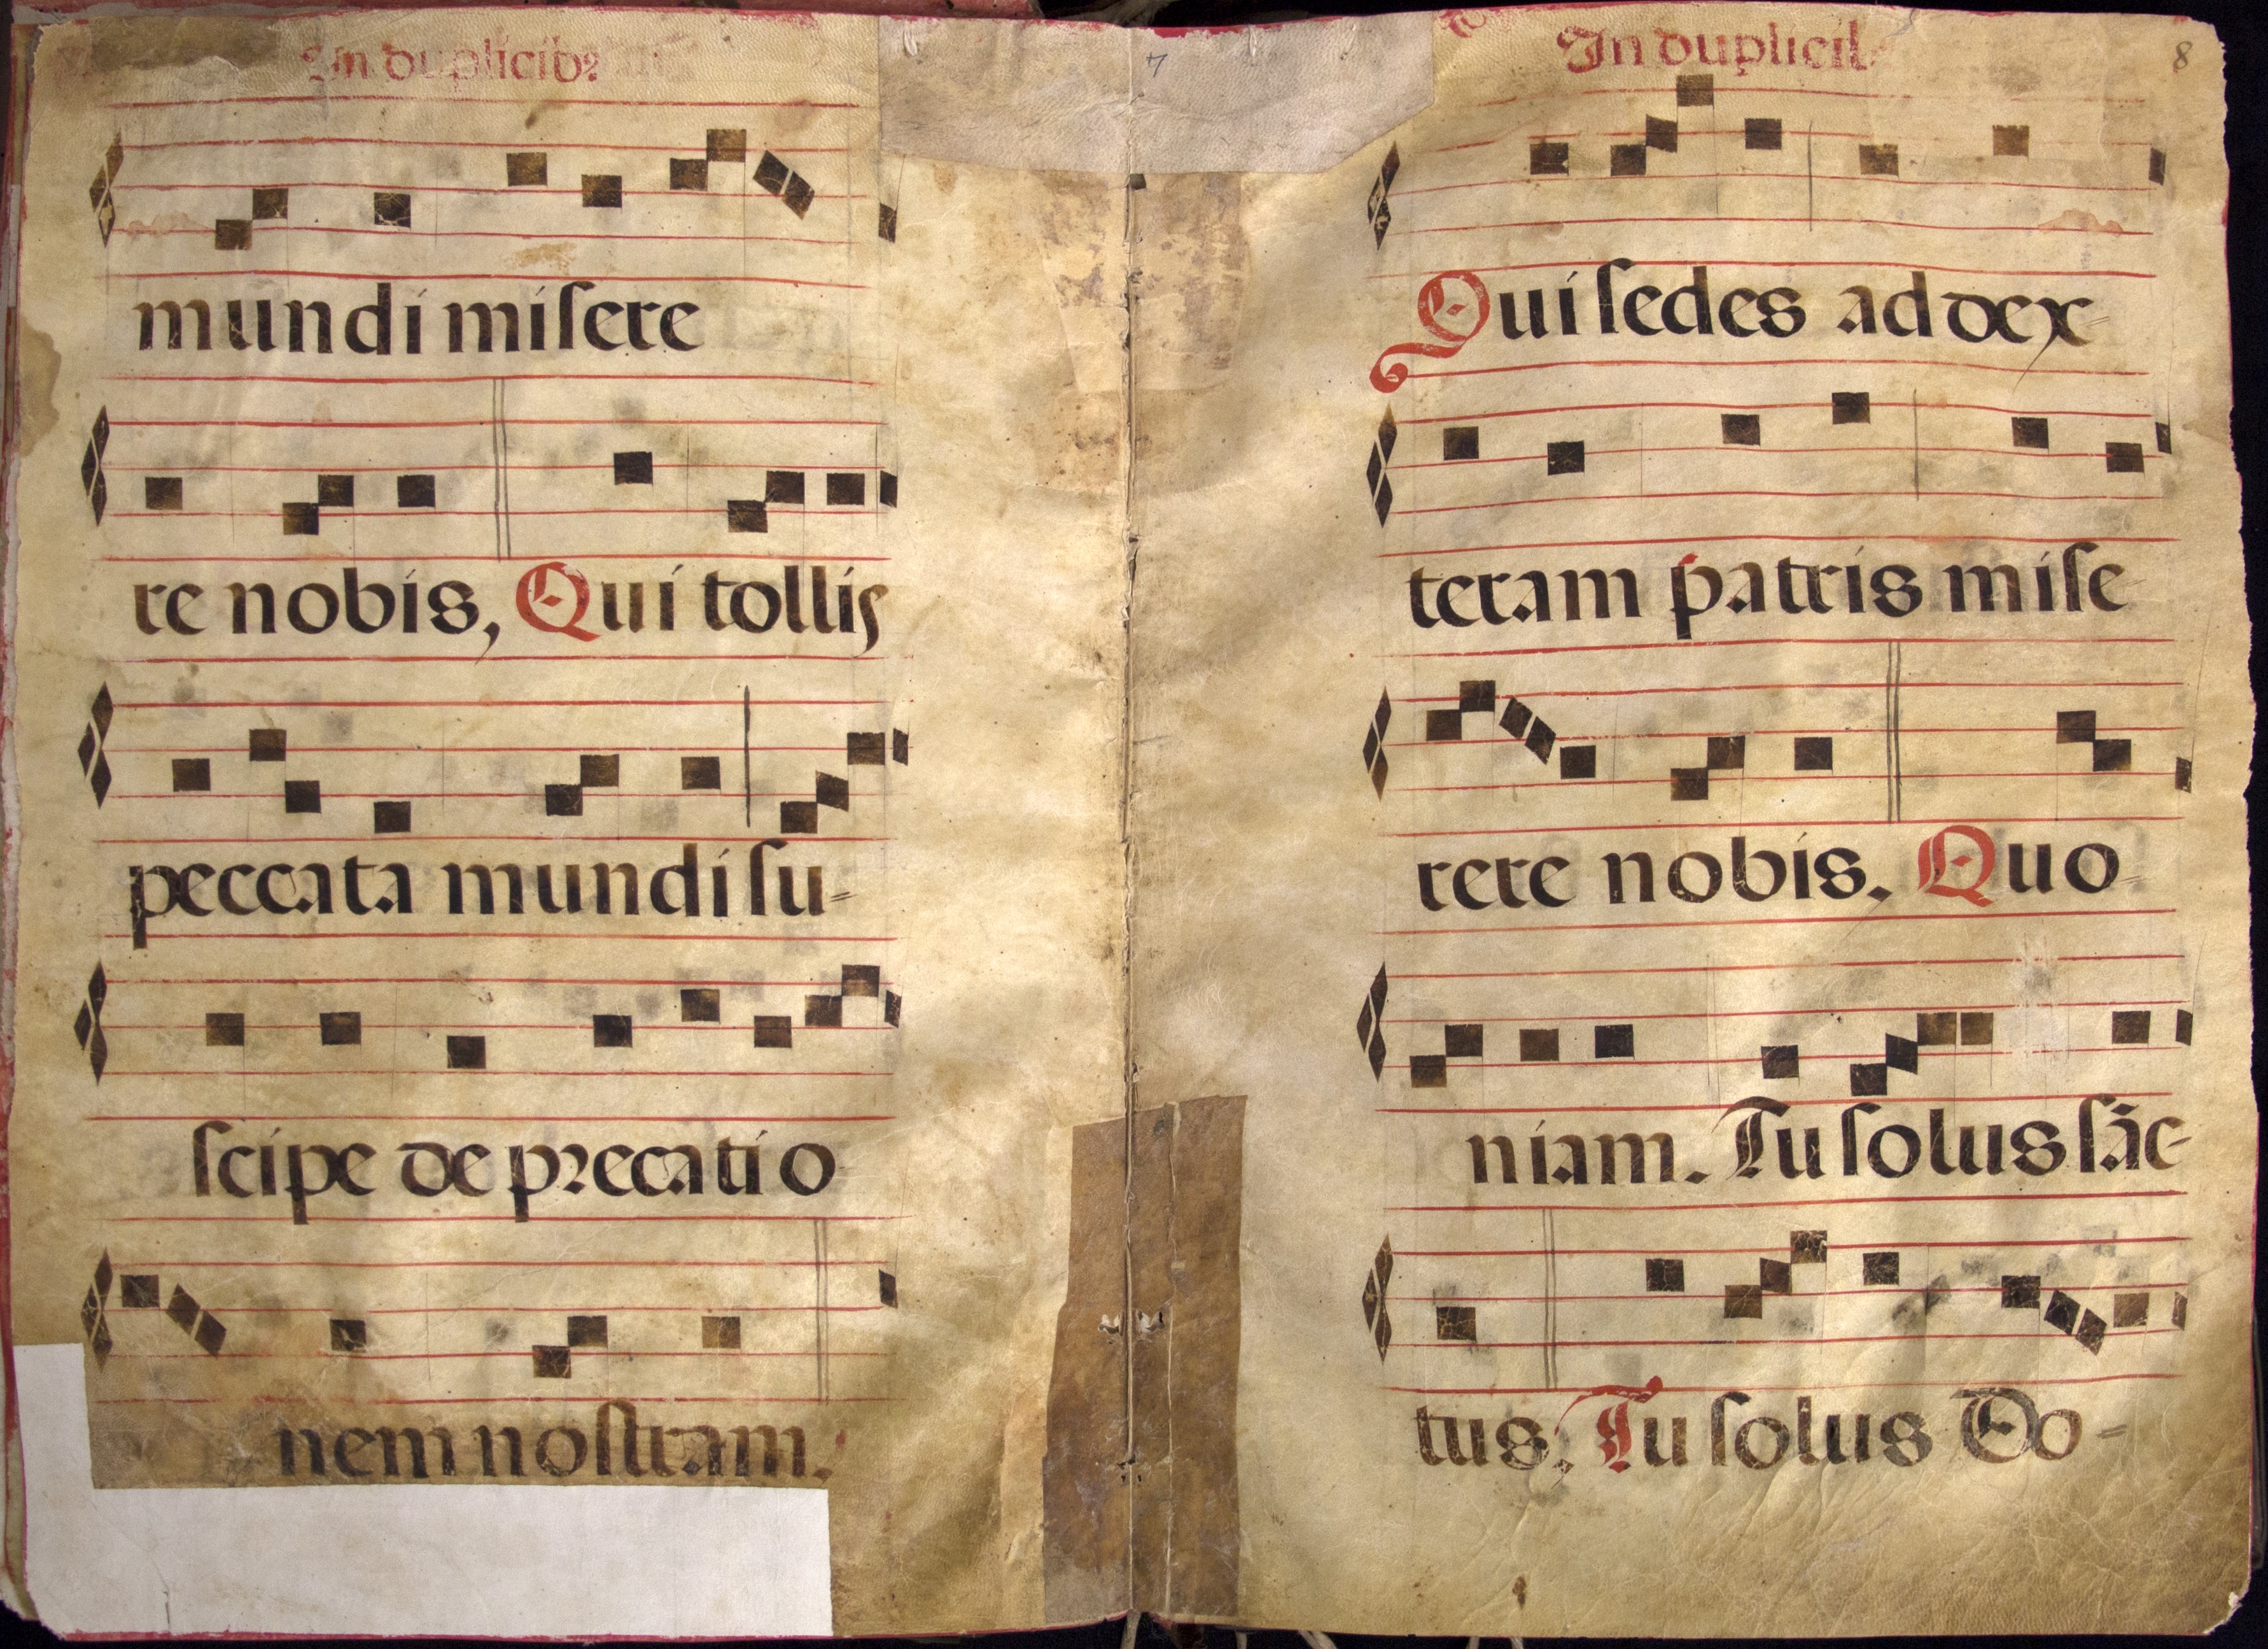 In duplicibꝰ
mundi miſere
re nobis, Qui tollis
peccata mundi ſu=
ſcipe de pꝛecatio
nem noſtram.
7
In duplicib
8
Qui ſedes ad dex=
teram patris miſe
rere nobis. Quo
niam. Tu ſolus ſāc-
tus. Tu ſolus Do-